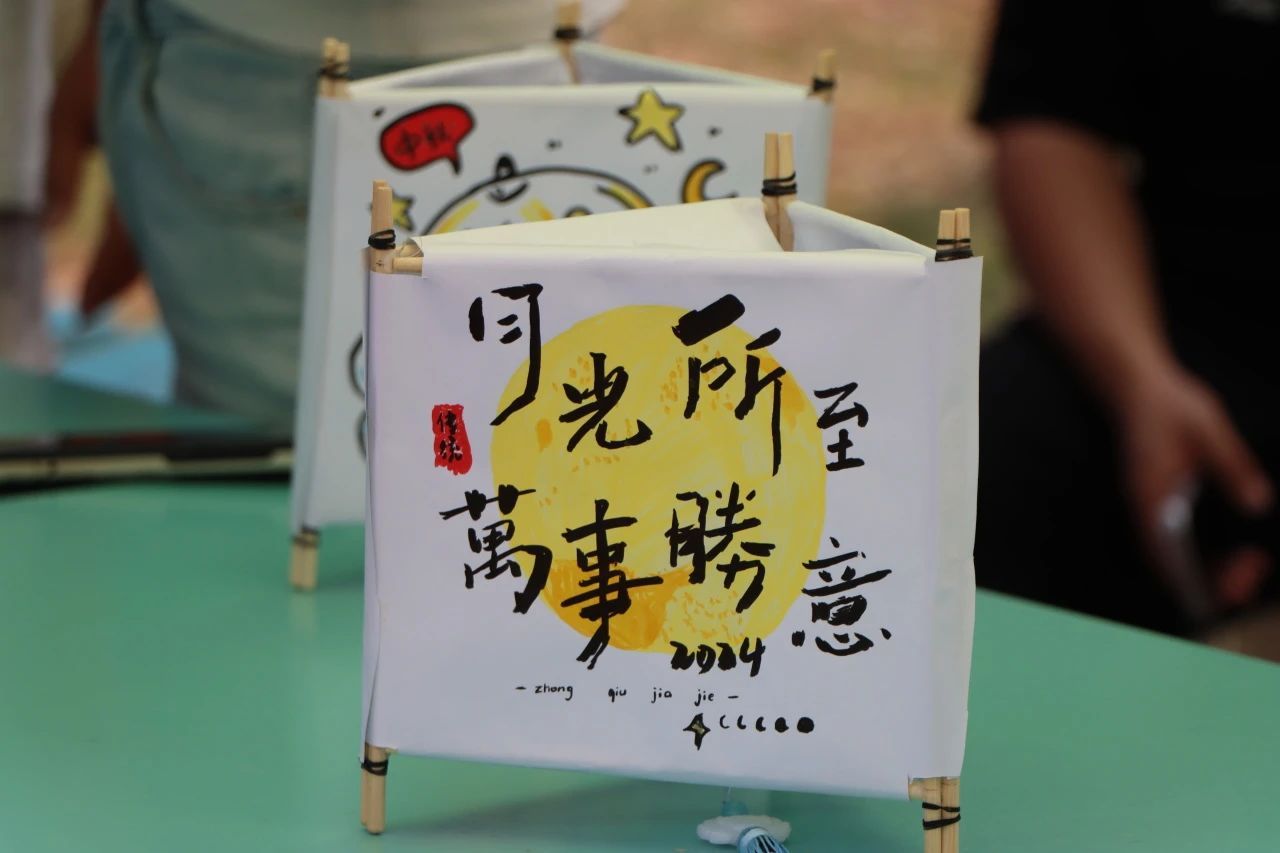 中秋
月光所至
传统
萬事勝意
2024
- zhong qiu jia jie -